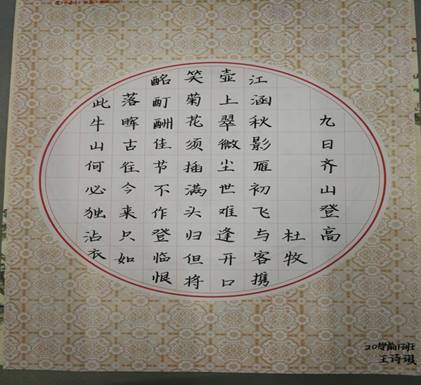 九日齐山登高
杜牧
江涵秋影雁初飞与客携
壶上翠微尘世难逢开口
笑菊花须插满头归但将
酩酊酬佳节不作登临恨
落晖古往今来只如
此牛山何必独沾衣
王诗